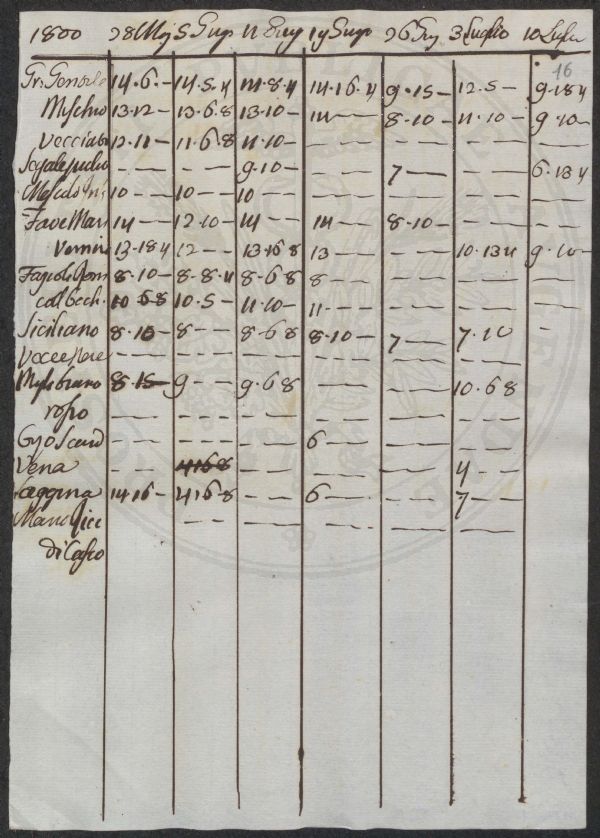 1800 28 Mag 5 Giug 11 Giug 19 Giug 26 Giug 3 Luglio 10 Luglio
16
Gr. Gentile 14.6.- 14.5.4 14.8.4 14.16.4 9.15- 12.5- 9.18.4
Mischio 13.12- 13.6.8 13.10- 14-- 8.10- 11.10- 9.10-
Vecciato 12.11- 11.6.8 11.10- --- --- ---
--- --- 9.10- --- 7-- --- 6.13.4
10-- 10-- 10 --- --- --- ---
Fave Mar 14-- 12.10- 14-- 14-- 8.10- --- --
13.18.4 12-- 13.16.8 13-- 10.13.4 9.10-
Fagioli 8.10- 8.8.4 8.6.8 8-- --- --- --
coll'occh. 10.6.8 10.5- 11.10- 11-- --- --- --
Siciliano 8.10- 8-- 8.6.8 8.10- 7-- 7.10 -
--- --- --- --- --- ---
8.15- 9-- 9.6.8 --- --- 10.6.8
rosso --- --- --- --- --- ---
--- --- --- 6-- --- ---
Vena -- 4.16.8 -- --- --- 4--
Saggina 14.16- 4.16.8 -- 6-- --- 7--
-- -- --- --- ---